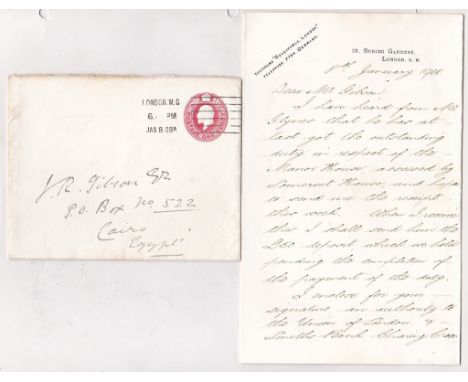 LONDON. W.C
6. PM
JAN 8 08
J. R. Gibson Esq
P.O. Box No 522
Cairo
Egypt
TELEGRAMS "RECEIVABLE, LONDON."
TELEPHONE 7790 GERRARD.
29, SPRING GARDENS,
LONDON, S.W.
8th January 1908.
Dear Mr Gibson
I have heard from Mr
Glynes that he has at
last got the outstanding
duty in respect of the
Manor House, accepted by
Somerset House, and hopes
to send me the receipt
this week. When I receive
this I shall send him the
deposit, which we hold
pending the completion of
the payment of the duty.
I enclose for your
signature an authority to
the Union of London &
Smiths Bank Charing Cross